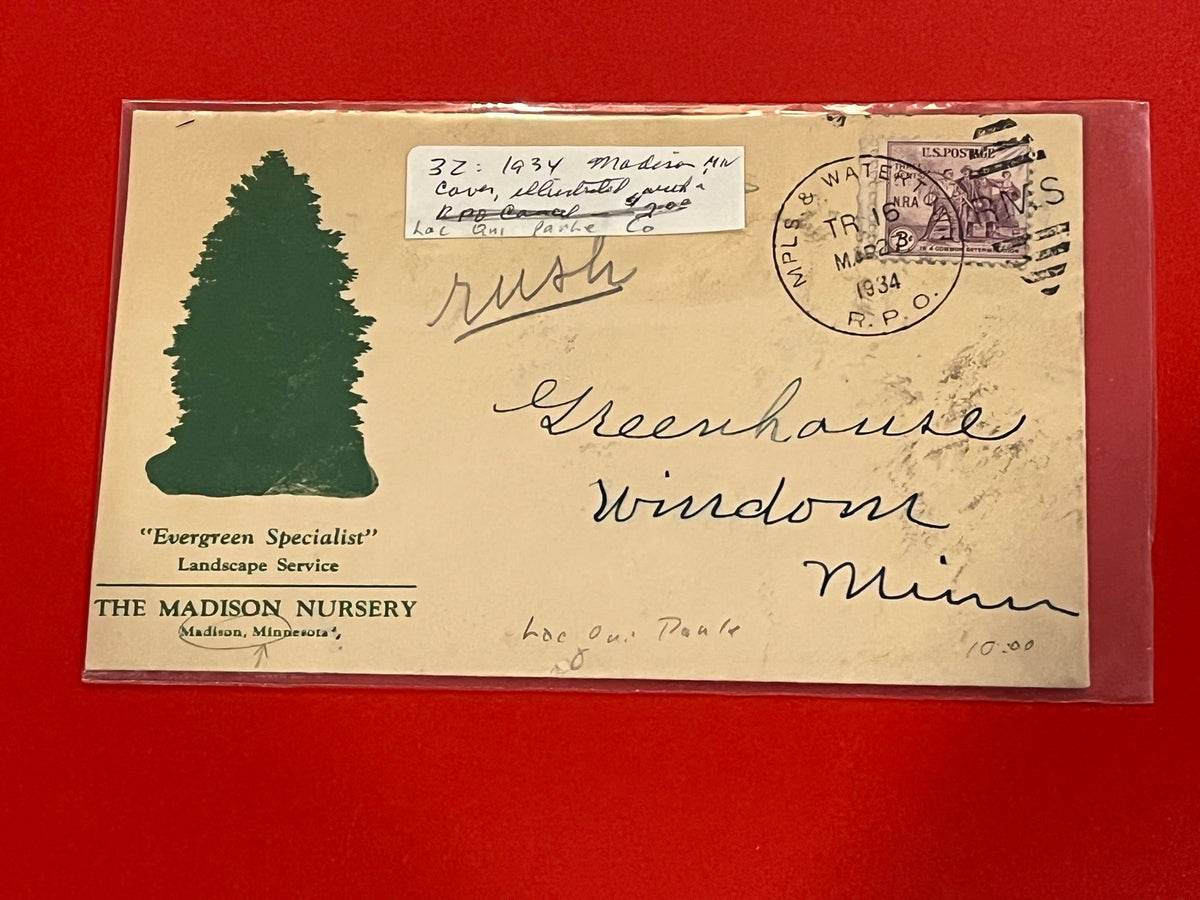 32: 1934 Madison MN
Cover, illustrated, with a
RPO Cancel $2.00
Lac Qui Parle Co
rush
MPLS & WATERT
TR 16
MAR 2
1934
R. P. O.
RMS
U.S. POSTAGE
N.R.A
3¢
IN A COMMON DETERMINATION
Greenhouse
Windom
Minn
"Evergreen Specialist"
Landscape Service
THE MADISON NURSERY
Madison, Minnesota
Lac Qui Parle
10.00